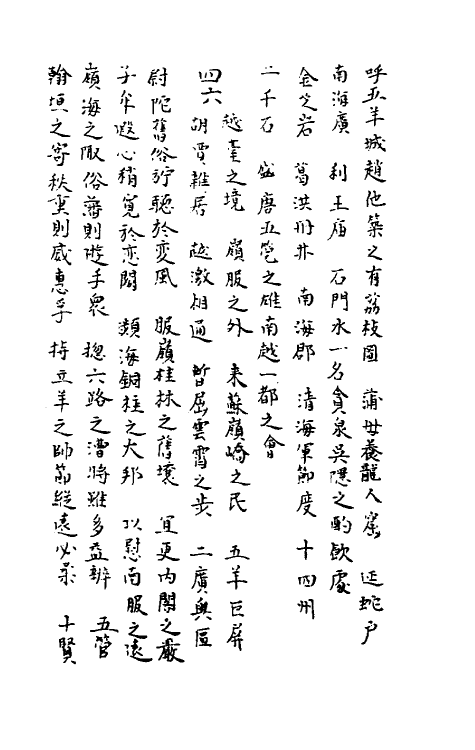 呼五羊城趙他築之有荔枝園　蒲母養龍人窟　延蛇户
南海廣　利王庙　石門水一名貪泉吳隱之酌飲處
金芝岩　葛洪丹井　南海郡　清海軍節度　十四州
二千石　盛唐五筦之雄南越一都之會
四六　越臺之境　嶺服之外　来蘇嶺嶠之民　五羊巨屏
胡賈雜居　越激相通　暫屈雲霄之步　二廣輿區
尉陀舊俗竚聴於变風　服嶺桂林之舊壤　宜更内閣之嚴
子牟遐心稍寛於恋闕　頻海銅柱之大邦　以慰南服之遠
嶺海之陬俗薄則遊手衆　揔六路之漕將雖多益辨　五管
翰垣之寄秩重則威惠孚　持五羊之帥節縱遠必来　十賢